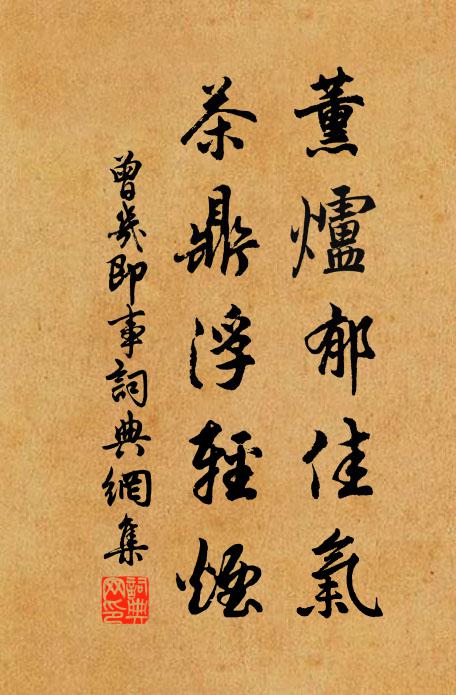 薰爐郁佳氣
茶鼎浮輕煙
曾幾即事詞典網集
詞典网印